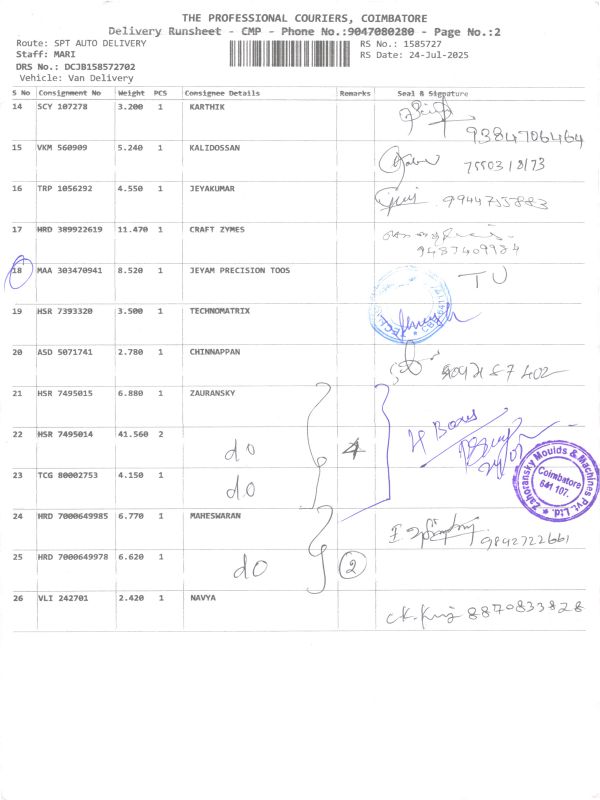 THE PROFESSIONAL COURIERS, COIMBATORE
Delivery Runsheet - CMP - Phone No.:9047080280 - Page No.:2
Route: SPT AUTO DELIVERY
Staff: MARI
DRS No.: DCJB158572702
Vehicle: Van Delivery
RS No.: 1585727
RS Date: 24-Jul-2025
S No Consignment No Weight PCS Consignee Details Remarks Seal & Signature
14 SCY 107278 3.200 1 KARTHIK
9384706464
15 VKM 560909 5.240 1 KALIDOSSAN
16 TRP 1056292 4.550 1 JEYAKUMAR 9944755883
17 HRD 389922619 11.470 1 CRAFT ZYMES
9487409984
18 MAA 303470941 8.520 1 JEYAM PRECISION TOOS TU
19 HSR 7393320 3.500 1 TECHNOMATRIX
20 ASD 5071741 2.780 1 CHINNAPPAN
21 HSR 7495015 6.880 1 ZAURANSKY
22 HSR 7495014 41.560 2 do 4 4 Boxes
23 TCG 80002753 4.150 1 do
Zahoransky Moulds & Machines Pvt. Ltd.
Coimbatore
641 107.
24 HRD 7000649985 6.770 1 MAHESWARAN
9842722661
25 HRD 7000649978 6.620 1 do 2
26 VLI 242701 2.420 1 NAVYA 8870833828